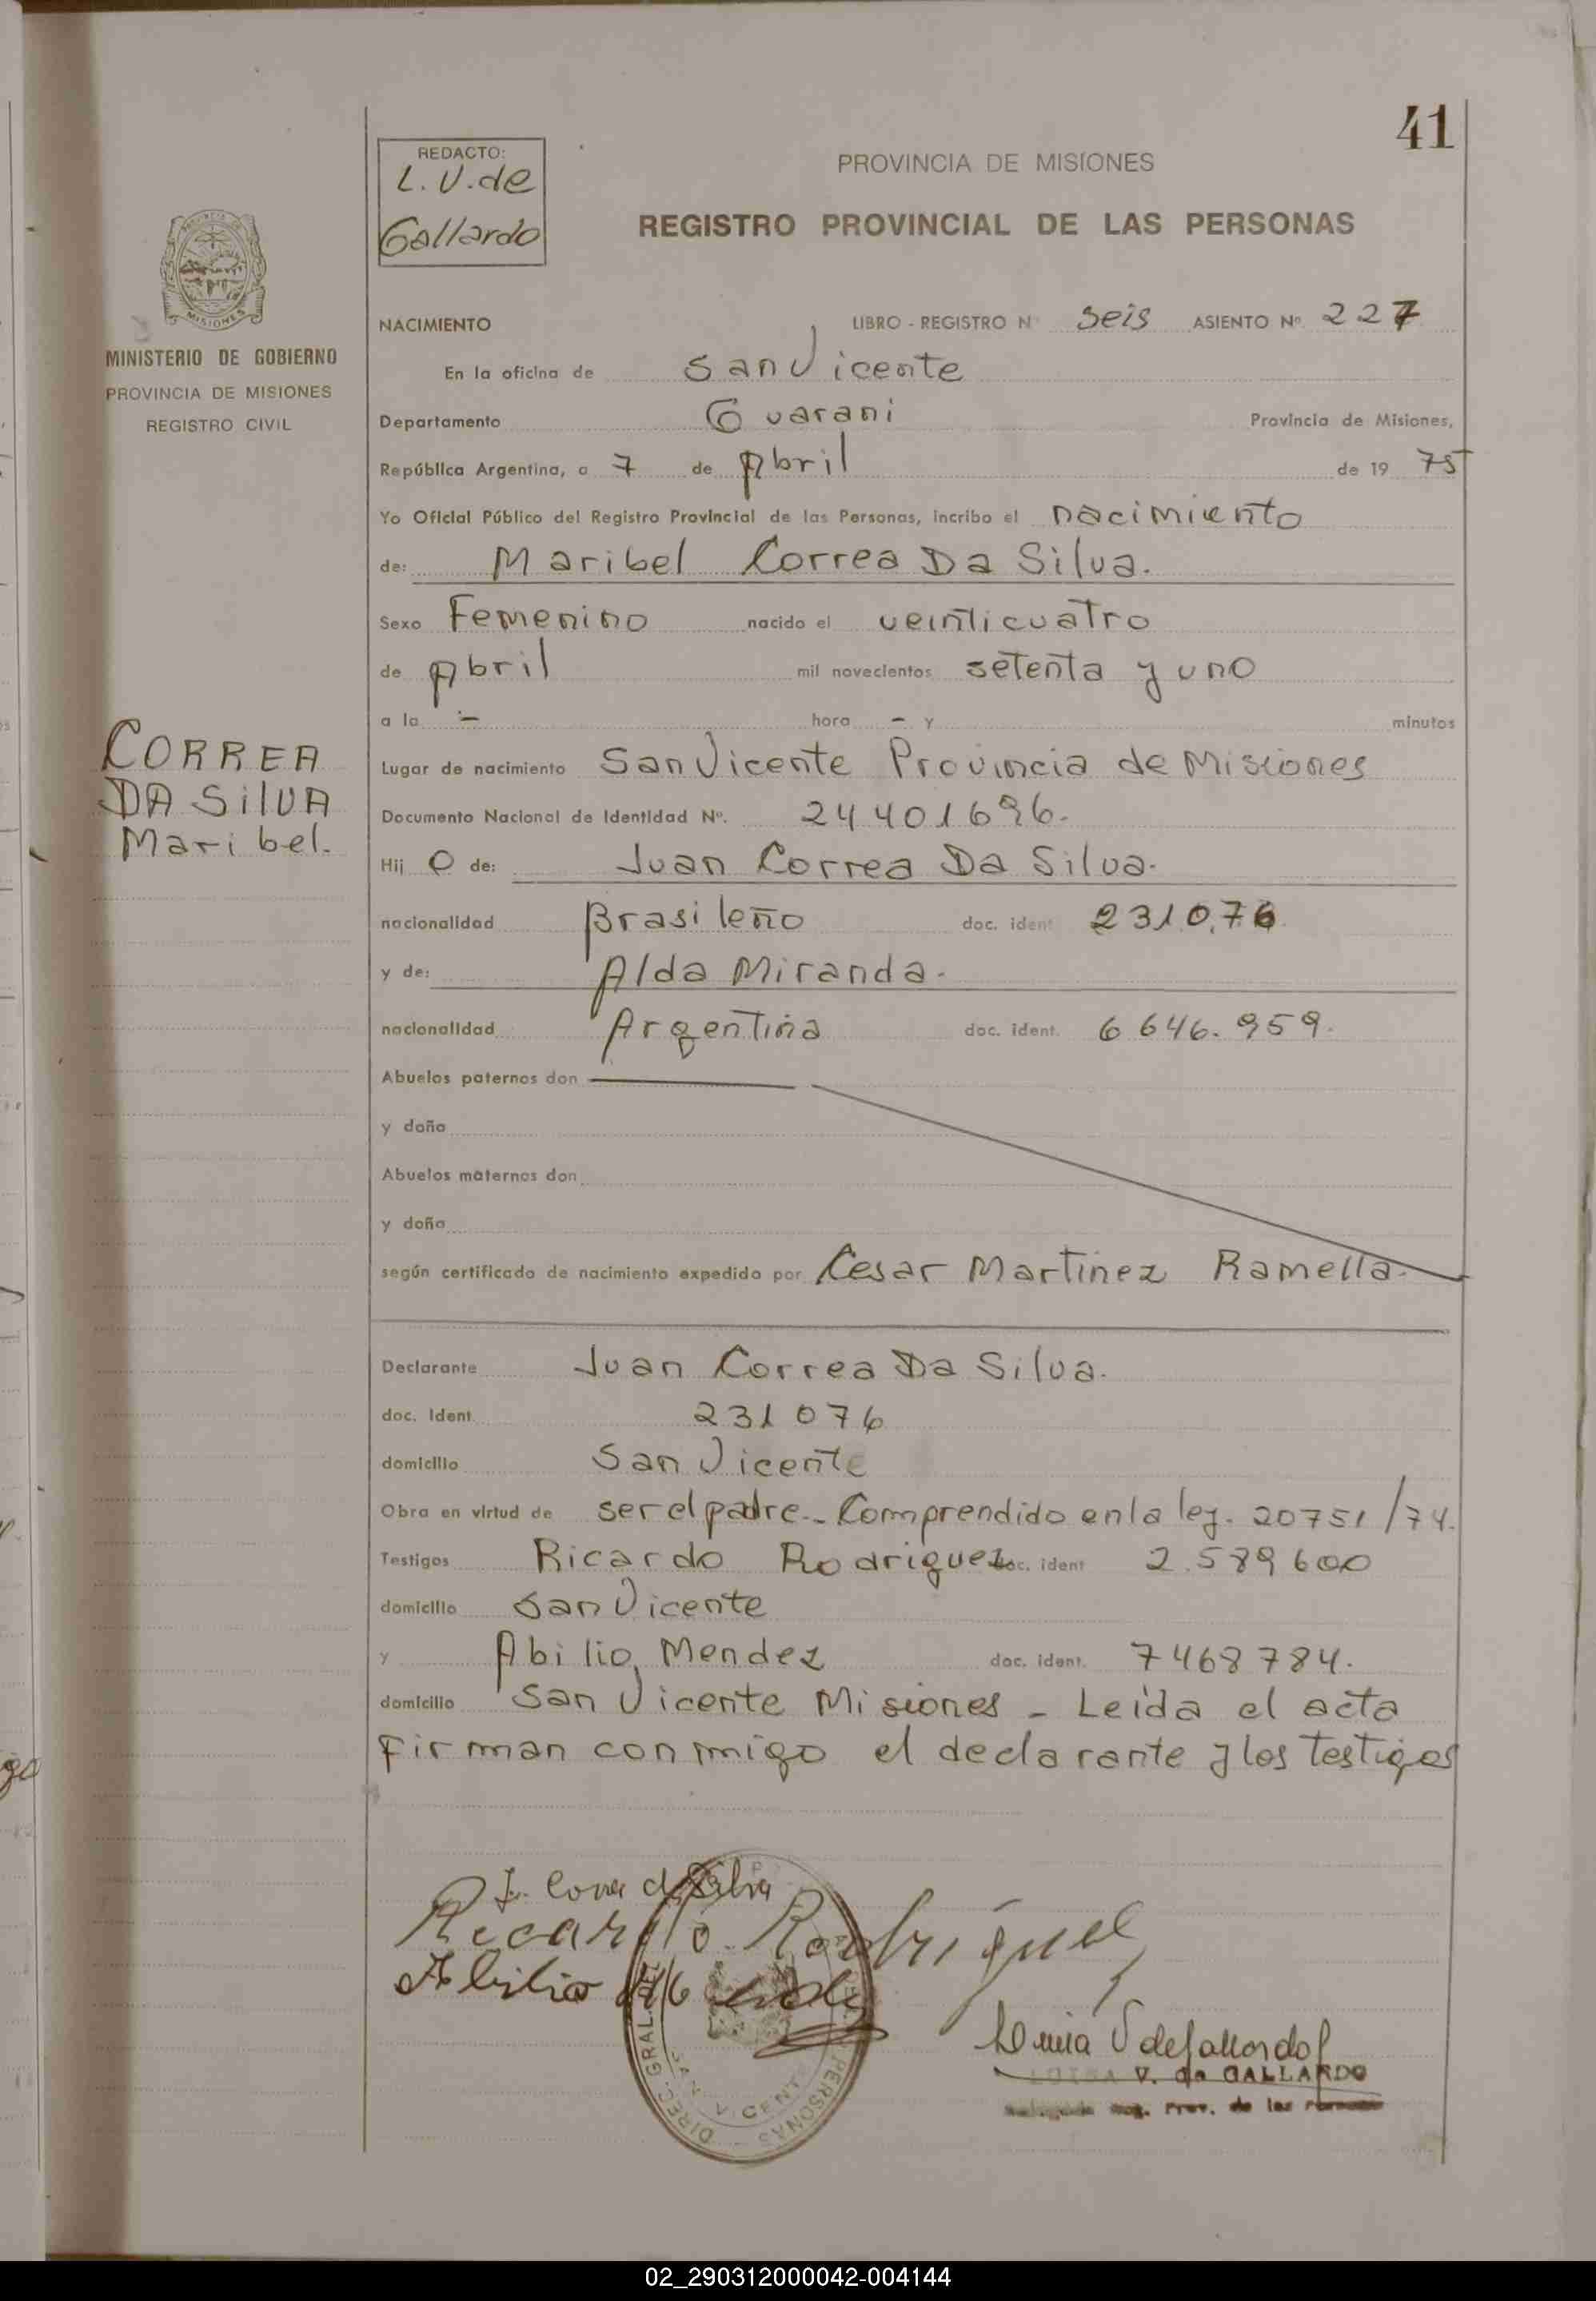 41
REDACTO:
L. V. de
Gallardo
PROVINCIA DE MISIONES
REGISTRO PROVINCIAL DE LAS PERSONAS
MISIONES
MINISTERIO DE GOBIERNO
PROVINCIA DE MISIONES
REGISTRO CIVIL
NACIMIENTO LIBRO - REGISTRO Nº seis ASIENTO Nº 227
En la oficina de San Vicente
Departamento Guarani Provincia de Misiones,
República Argentina, a 7 de Abril de 19 75
Yo Oficial Público del Registro Provincial de las Personas, incribo el nacimiento
de: Maribel Correa Da Silva.
Sexo Femenino nacido el veinticuatro
de Abril mil novecientos setenta y uno
a la - hora - y minutos
CORREA
DA SilVA
Maribel.
Lugar de nacimiento San Vicente Provincia de Misiones
Documento Nacional de Identidad Nº. 24401696.
Hij a de: Juan Correa Da Silva.
nacionalidad Brasileño doc. ident 231076
y de: Alda Miranda.
nacionalidad Argentina doc. ident. 6646.959.
Abuelos paternos don
y doña
Abuelos maternos don
y doña
según certificado de nacimiento expedido por Cesar Martinez Ramella.
Declarante Juan Correa Da Silva.
doc. Ident 231076
domicilio San Vicente
Obra en virtud de ser el padre.- Comprendido en la ley. 20751/74.
Testigos Ricardo Rodriguez doc. ident 2.589600
domicilio San Vicente
y Abilio Mendez doc. ident. 7468784.
domicilio San Vicente Misiones - Leida el acta
Firman conmigo el declarante y los testigos
J. Correa da Silva
Ricardo Rodríguez
Abilio Mende
DIREC. GRAL. DEL PERSONAS
SAN VICENTE
Luisa V de Gallardo
LUISA V. de GALLARDO
Reg. Prov. de las Personas
02_290312000042-004144